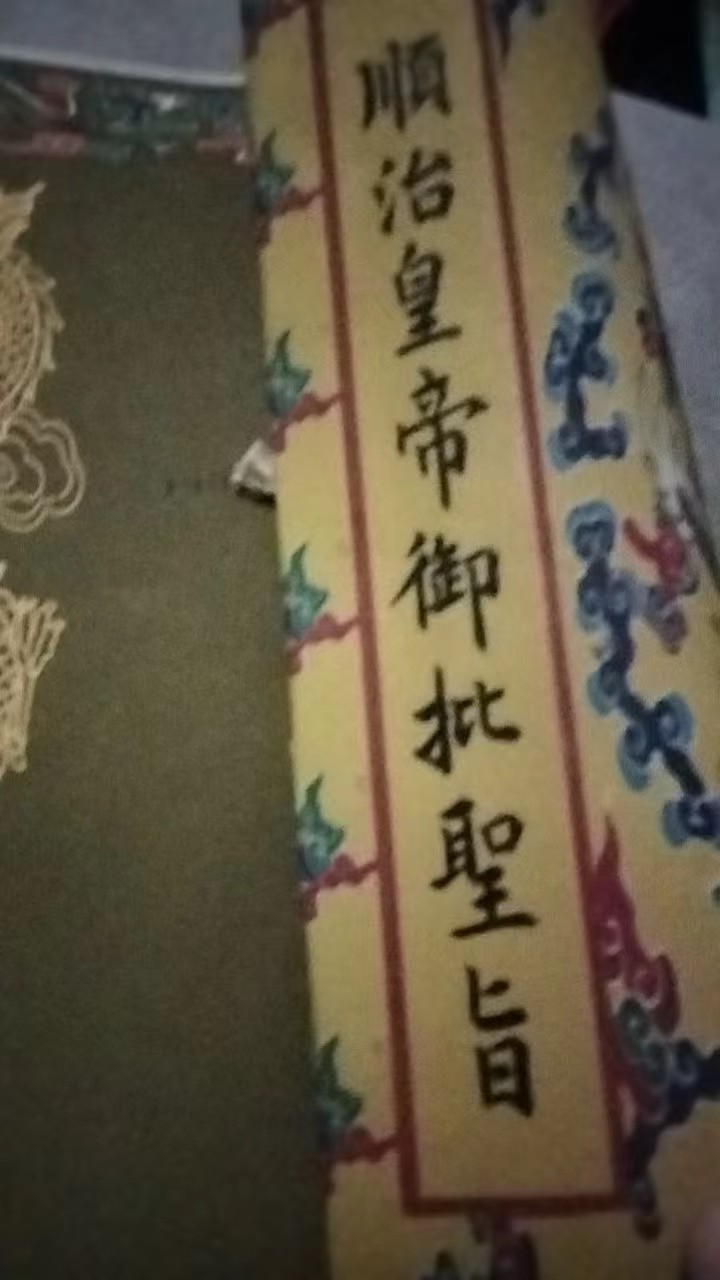 順治皇帝御批聖旨